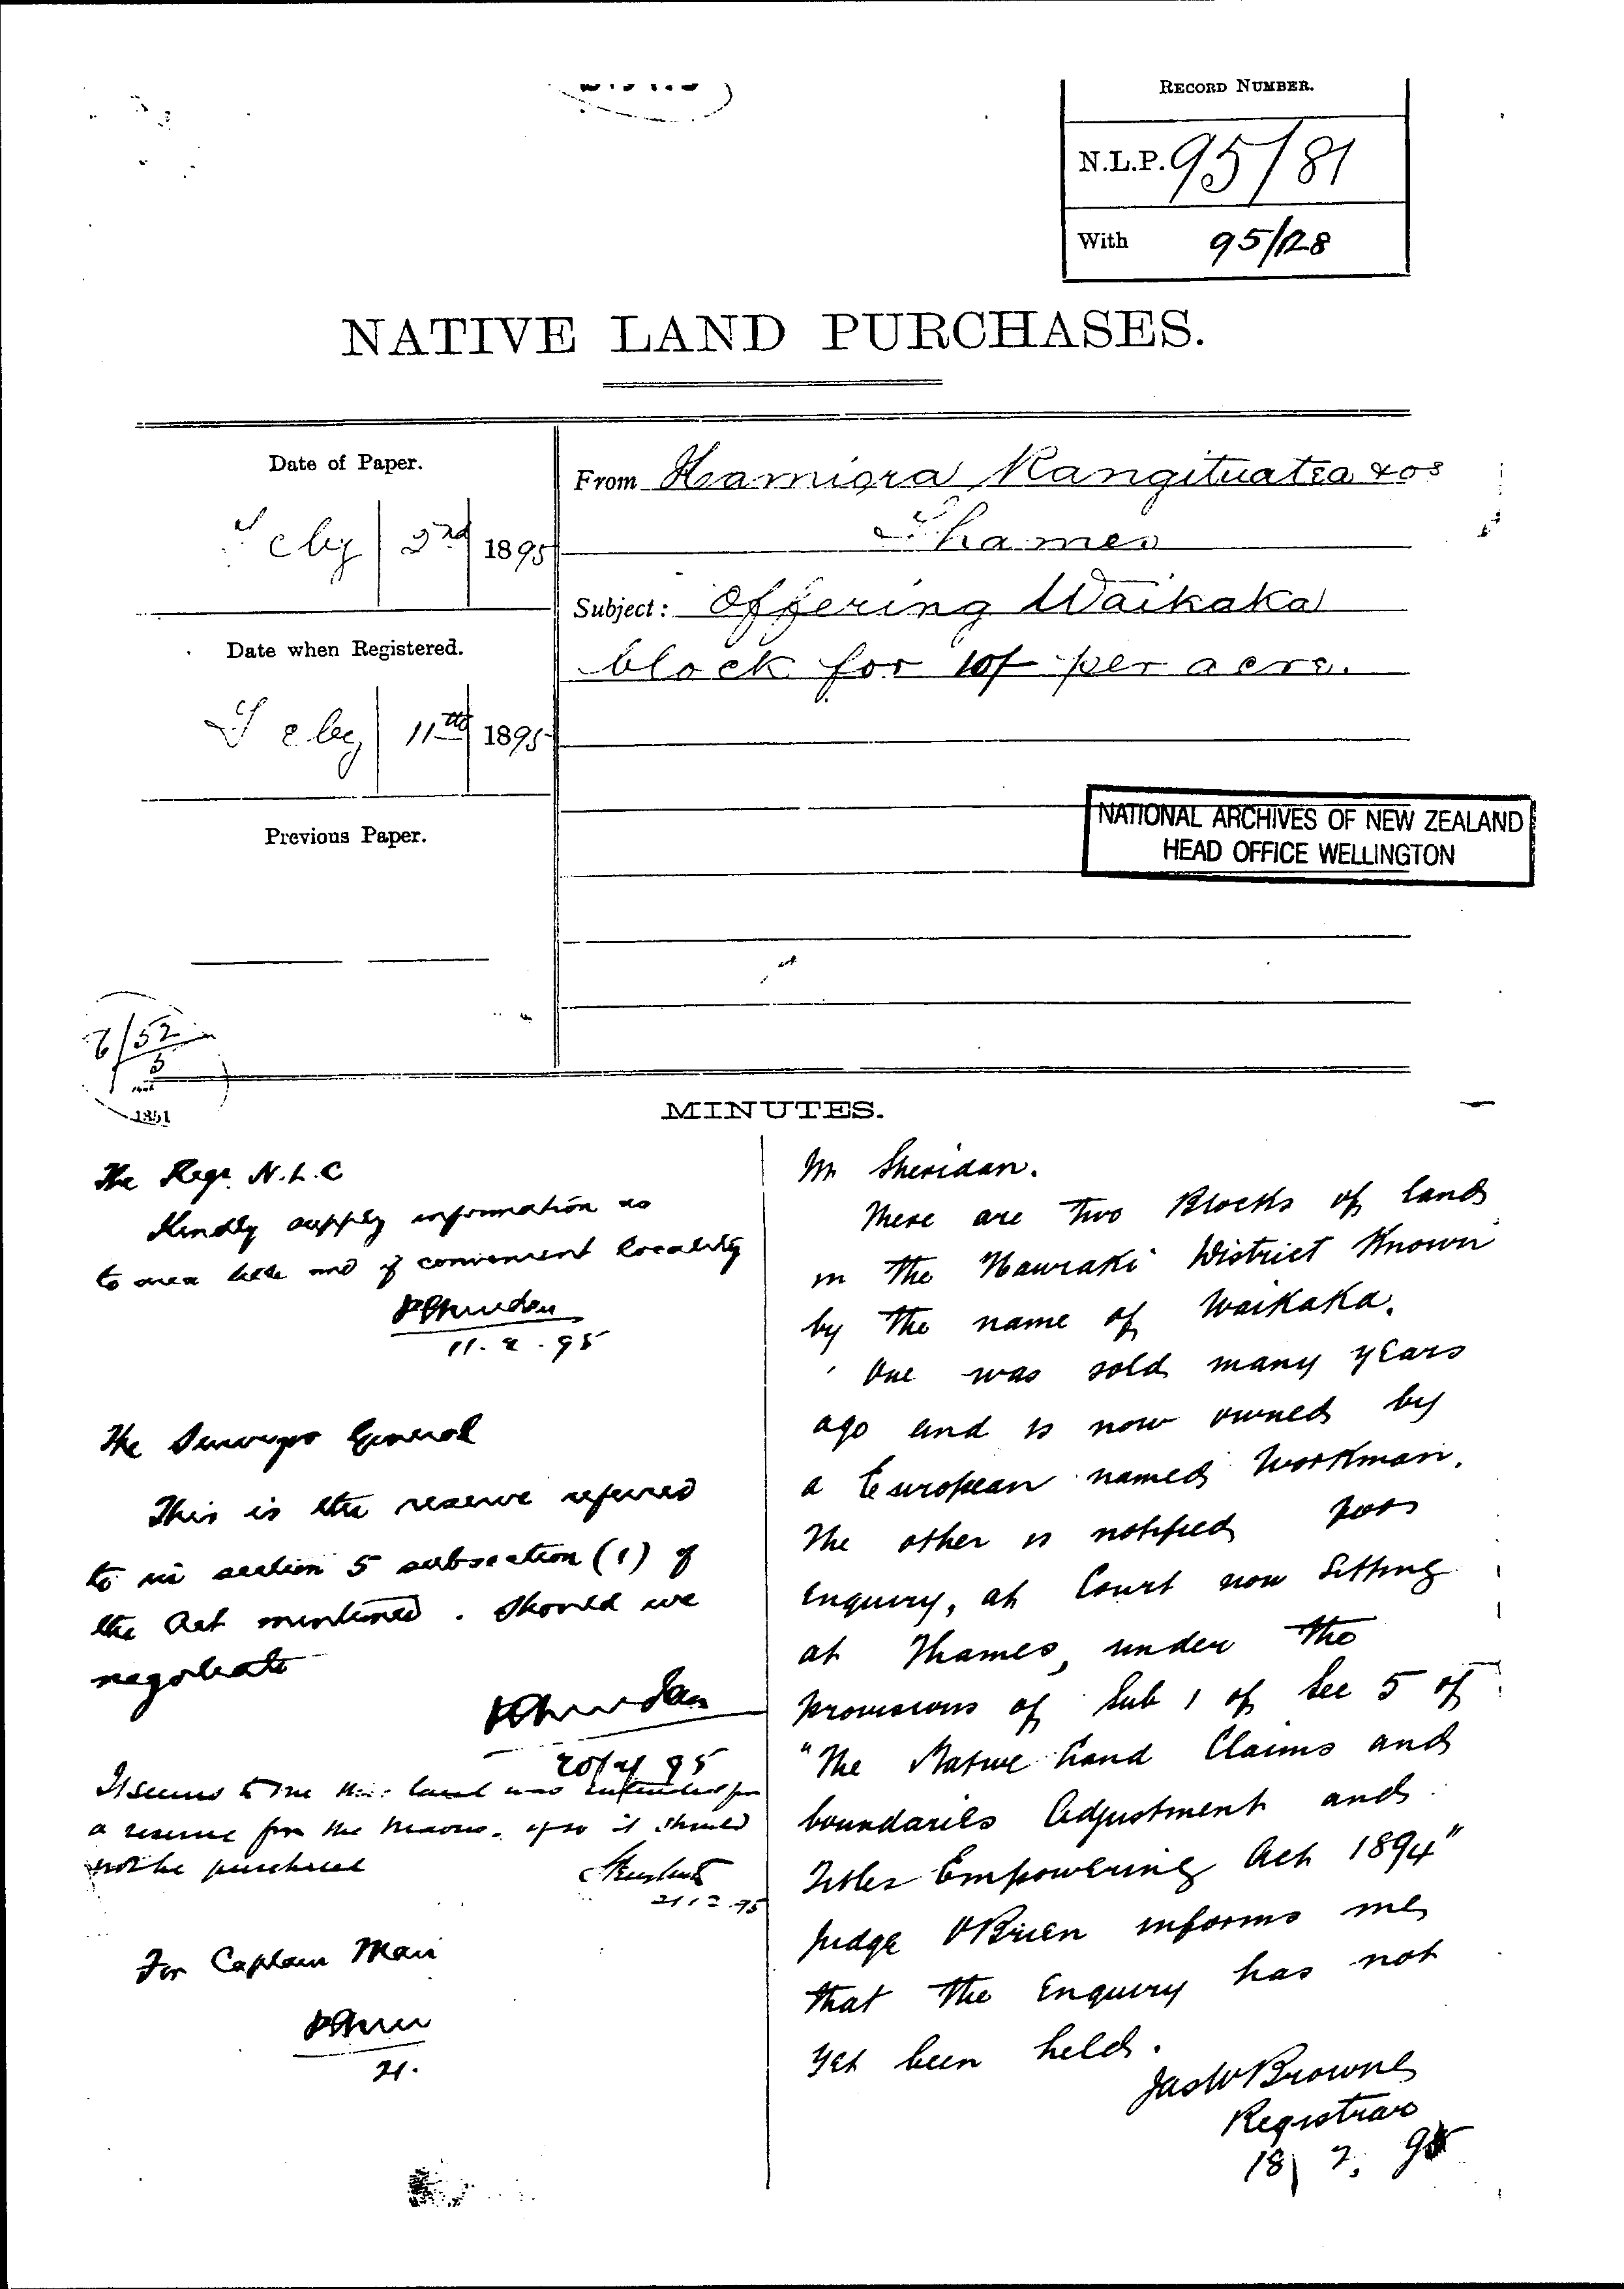 RECORD NUMBER.
N.L.P. 95/81
With 95/128
NATIVE LAND PURCHASES.
Date of Paper.
Feby 2nd 1895
Date when Registered.
Feby 11th 1895
Previous Paper.
From Hamiora Rangituatea & os
Thames
Subject: Offering Waikaka
block for 10/- per acre.
NATIONAL ARCHIVES OF NEW ZEALAND
HEAD OFFICE WELLINGTON
MINUTES.
The Regr. N.L.C
Kindly supply information as
to area title and if convenient locality
P Sheridan
11.2.95
The Surveyor General
This is the reserve referred
to in section 5 subsection (1) of
the Act mentioned. Should we
negotiate
P Sheridan
20/2/95
It seems to me this land was intended for
a reserve for the Maoris, if so it should
not be purchased
21.2.95
For Captain Mair
21.
Mr Sheridan.
There are two Blocks of land
in the Hauraki District Known
by the name of Waikaka.
One was sold many years
ago and is now owned by
a European named Workman.
The other is notified for
enquiry, at Court now Sitting
at Thames, under the
provisions of Sub 1 of Sec 5 of
"The Native Land Claims and
boundaries Adjustment and
Titles Empowering Act 1894"
Judge O'Brien informs me
that the Enquiry has not
yet been held.
Jas W Browne
Registrar
18/2.95